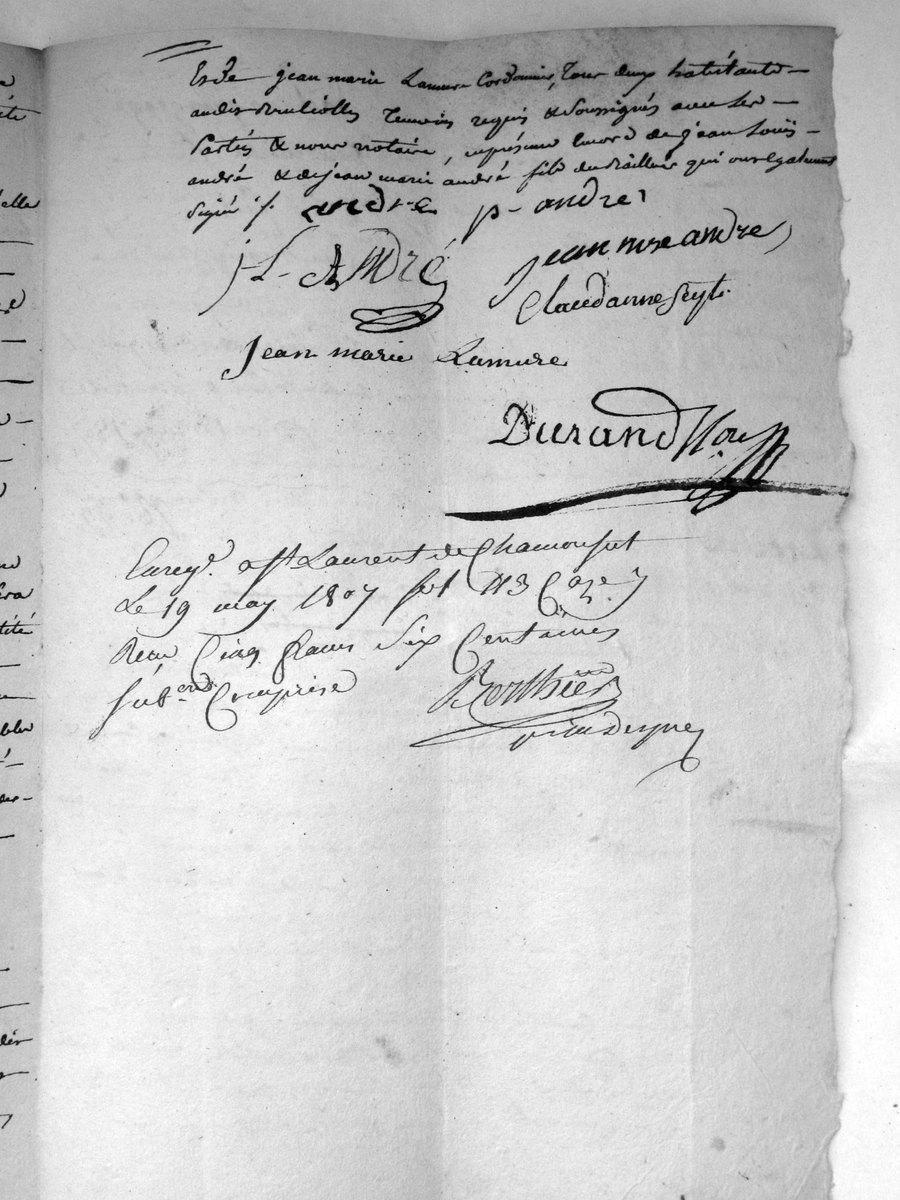 Et de jean marie Lamure Cordonnier, tous deux habitants
audit Brulliolles Temoins requis & Soussignés avec les
Parties & nous notaire, en présence encore de jean Louis
andré & de jean marie andré fils du Bailleur qui ont également
Signé ./.
andre p- andre
j L- André jean mre andre
Claudanne Seyt.
Jean marie Lamure
Durand Nore
Enregé. a St Laurent de Chamousset
Le 19 may 1807 fol 113 Caze. 7
Recu Cinq francs Six Centimes
Subon Comprise Berthier